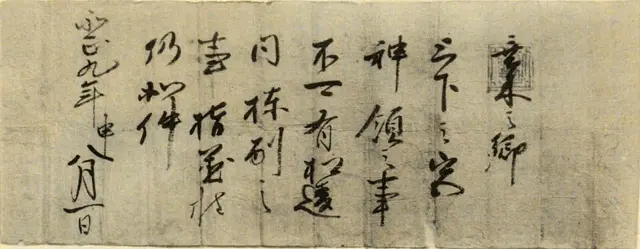 之郷
下之宮
神領之事
不可有相違
同棟別之
指置
仍如件
永正九年申八月一日